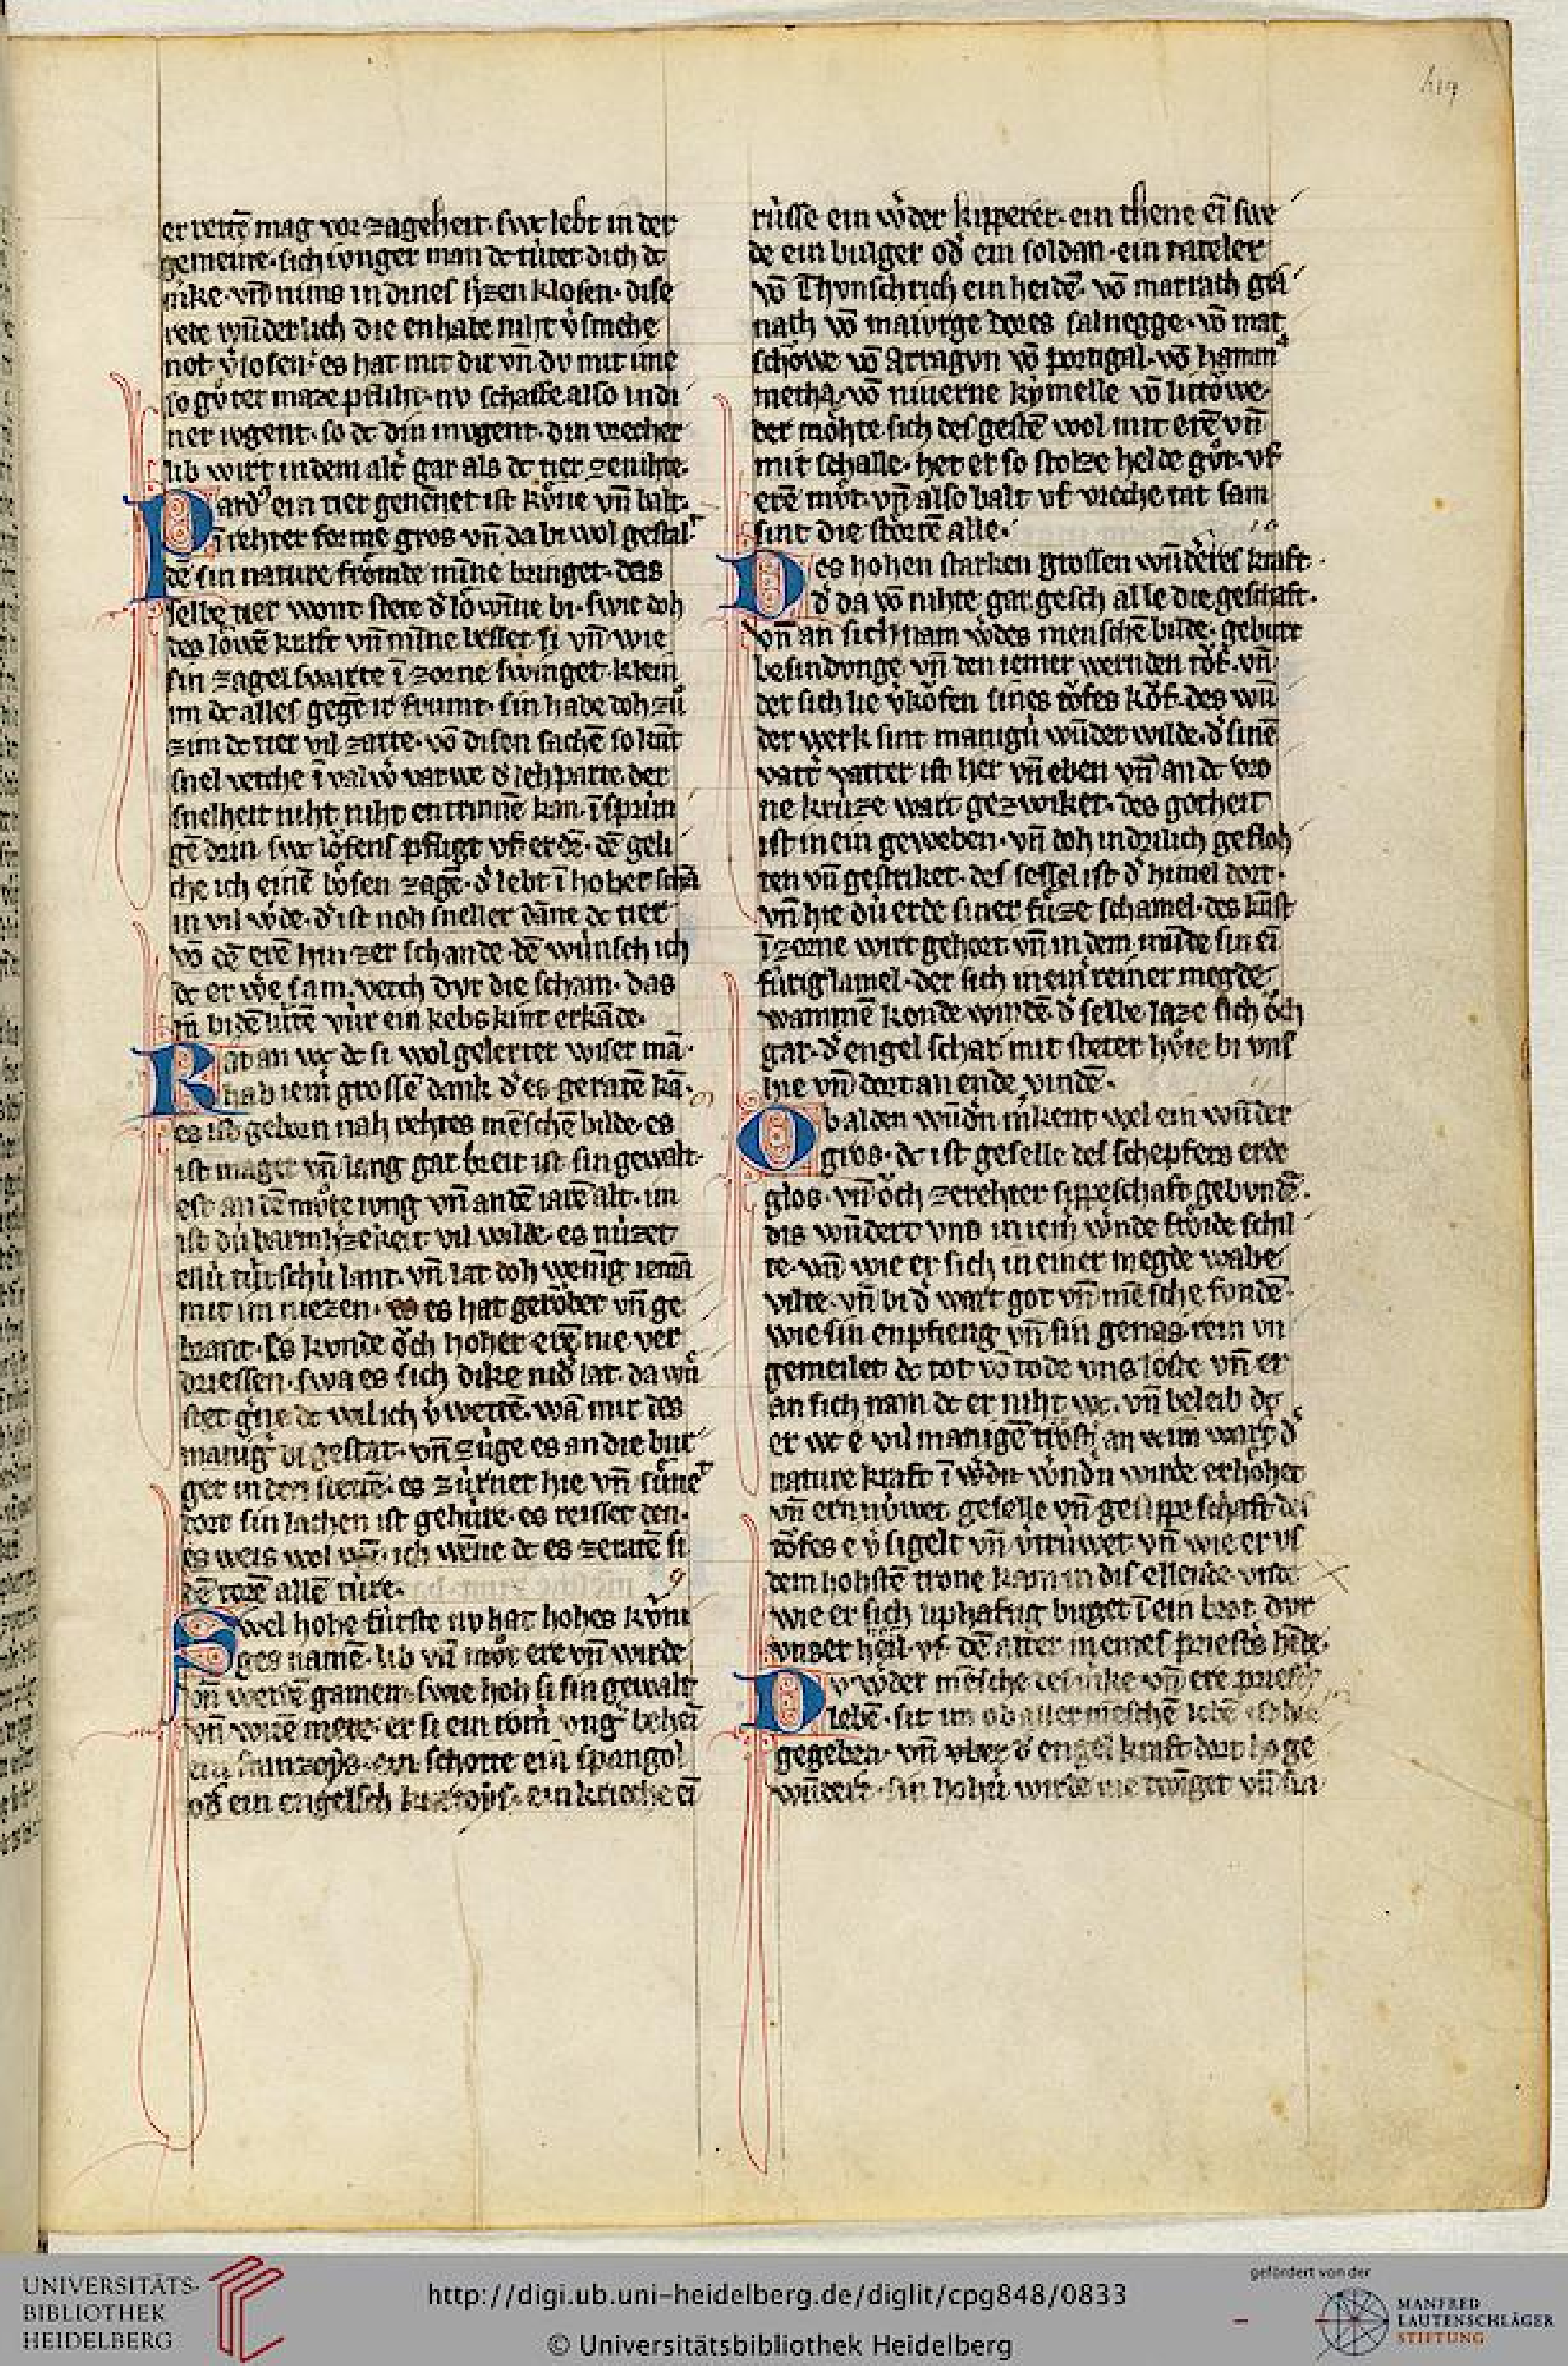 er rettē mag vor zageheit. swc lebt in der
gemeine. sich iunger man dc tùtet dich dc
mke. vn̄ nims in dines h̓zen klosen. dise
rede wn̄derlich die enhabe niht v̓ smehe
not v̓losen. es hat mit dir vn̄ dv mit ime
so gv̊ter maze pfliht. nv schaffe also in di
ner iugent. so dc din mugent. din vrecher
lib wirt in dem alt̓ gar als dc tier ze nihte.
Pard᷒ ein tier genēnet ist kv̊ne vn̄ balt.
ī rehter forme gros vn̄ da bi wol gestalt
dē sin nature frōmde mīne bringet. das
selbe tier wont stete d̓ lōwīne bi. swie doh
des lōwē kraft vn̄ mīne besser si vn̄ wie
sin zagel swarte ī zorne swinget. klein
im dc alles gegē ir frumt. sin habe doh zů
zim dc tier vil zarte. vō disen sachē so kūt
snel vetche ī valwˢ varwe d̓ lehparte der
snelheit niht niht entrinnē kan. ī sprün
gē drin. swc lôfens pfligt vf erdē. dē geli
che ich einē bôsen zagē. d̓ lebt ī hoher schā
in vil w̓de. d̓ ist noh sneller dāne dc tier
vō dē erē hin zer schande. dē wùnsch ich
dc er w̓e sam. vetch dvr die scham. das
in bi dē lùtē vùr ein kebs kint erkāde.
Ratan wc dc si wol gelerter wiser mā.
hab iem̓ grossē dank d̓ es geratē kā.
es ist geborn nah rehtes mēschē bilde. es
ist mager vn̄ lang gar breit ist sin gewalt.
est an dē mv̊te iung vn̄ an dē iarē alt. im
ist dù barmh̓zekeit vil wilde. es nùzet
ellù tùtschù lant. vn̄ lat doh wenig iemā
mit im niezen. es hat gerôbet vn̄ ge
brant. Es kvnde ôch hoher erē nie ver
driessen. swa es sich dike nid̓ lat. da wů
stet
manig̓ bi gestat. vn̄ zùge es an die bùr
ger in den stettē. es zùrnet hie vn̄ sùnet
dort sin lachen ist gehùre. es reisset den.
es weis wol wē. ich wēne dc es ze ratē si
dē torē allē tùre.
Swel hohe fùrste nv hat hohes kùni
ges namē. lib vn̄ mv̊t ere vn̄ wirde
vn̄ werdē gamen. swie hoh si sin gewalt
vn̄ wirē mere. er si ein rôm̓ vng̓ behei
ein franzoys. ein schotte ein spangol
od̓ ein engelsch kurtoys. ein krieche eī
rùsse ein w̓der kipperer. ein thene eī swe
de ein bulger od̓ ein soldan. ein tateler
vō Thvnschrich ein heidē. vō marrath gra
nath vō maivrge dees salnegge. vō mat
schowe vō Arragvn vō portigal. vō hamm
metha. vō niuerne kymelle vō littôwe.
der môhte sich des gestē wol mit erē vn̄
mit schalle. het er so stolze helde gv̊t. vf
erē mv̊t. vn̄ also balt vf vreche tat sam
sint die stôrrē alle.
Des hohen starken grossen wūderes kraft.
d̓ da vō nihte gar gesch alle die geschaft.
vn̄ an sich nam w̓des menschē bilde. geburt
besindvnge vn̄ den iemer wernden tôf. vn̄
der sich lie v̓kôfen sines tôfes kôf. des wū
der werk sint manigù wūder wilde. d̓ sinē
vatt̓ vatter ist her vn̄ eben vn̄ an dc vro
ne krùze wart gezwiket. des gotheit
ist in ein geweben. vn̄ doh in drilich gefloh
ten vn̄ gestriket. des sessel ist d̓ himel dort.
vn̄ hie dù erde siner fùze schamel. des kūst
ī zorne wirt gehort. vn̄ in dem milde sin eī
fùrig lamel. der sich in ein̓ reiner megde.
wammē konde windē. d̓ selbe laze sich ôch
gar. d̓ engel schar mit steter hôre bi vns
hie vn̄ dort an ende vindē.
Obalden wūdn̄ m̓kent wel ein wūder
gros. dc ist geselle des schepfers erde
glos. vn̄ ôch ze rehter sippeschaft gebvndē.
dis wn̄dert vns in iem̓ w̓nde frôide schil
te. vn̄ wie er sich in einer megde wabe
vilte. vn̄ bi d̓ wart got vn̄ mēsche fvndē.
wie sin enpfieng vn̄ sin genas. rein vn
gemeilet dc tot vō tode vns loste vn̄ er
an sich nam dc er niht wc. vn̄ beleib dc
er wc e vil manigē trost. an wem wart d̓
nature kraft ī w̓dn w̓ndn wirde erhôhet
vn̄ ernùwet geselle vn̄ gesippeschaft des
tôfes e v̓sigelt vn̄ v̓trùwet. vn̄ wie er vs
dem hohstē trone kam in dis ellende. vnde
wie er sich liphaftig buget ī ein brot. dvr
vnser heil. vf dē alter in eines priesters hēde.
Dv w̓der mēsche vn̄ ere priester
lebē. sit im ob aller mēschē lebē ist hie
gegeben. vn̄ vber d̓ engel kraft dort hage
wn̄dert. sin hohù wirde nie vn̄ sin
UNIVERSITÄTS-
BIBLIOTHEK
HEIDELBERG
http://digi.ub.uni-heidelberg.de/diglit/cpg848/0833
© Universitätsbibliothek Heidelberg
gefördert von der
MANFRED
LAUTENSCHLÄGER
STIFTUNG